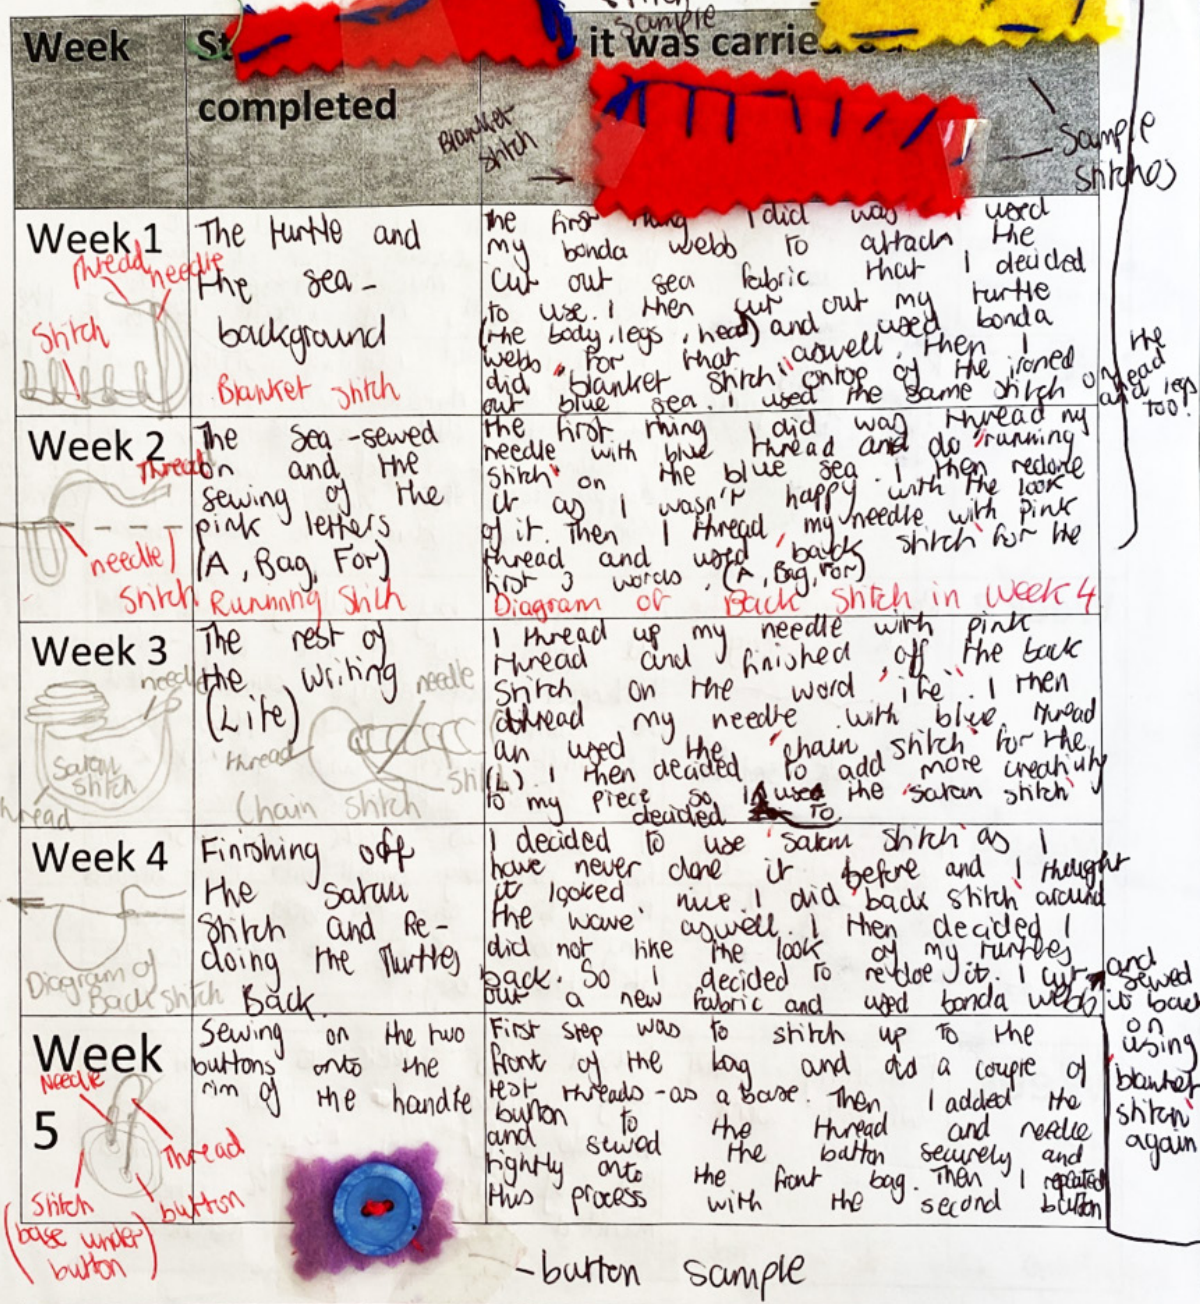 Stitch
sample
Week
St
it was carried out
completed
Blanket
stitch
Sample
stitches
Week 1
Thread
needle
Stitch
The turtle and
the sea-
background
Blanket Stitch
the first thing I did was I used
my bonda webb to attach the
cut out sea fabric that I decided
to use. I then cut out my turtle
(the body, legs, head) and used bonda
webb, for that aswell. Then I
did "blanket stitch" ontop of the ironed
out blue sea. I used the same stitch on
the
head
and legs
too!
Week 2
Thread
needle
Stitch
The sea-sewed
on and the
sewing of the
pink letters
(A, Bag, For)
Running Stich
the first thing I did was thread my
needle with blue thread and do "running
stitch" on the blue sea. I then redone
it as I wasn't happy with the look
of it. Then I thread my needle with pink
thread and used 'back stitch' for the
first 3 words (A, Bag, For)
Diagram of Back Stitch in week 4
Week 3
needle
Satam
stitch
thread
The rest of
the writing
(Life)
needle
thread
stitch
Chain stitch
I thread up my needle with pink
thread and finished off the back
stitch on the word 'ife'. I then
thread my needle with blue thread
an used the 'chain stitch' for the
(L). I then decided to add more creativity
to my piece so I used the 'satan stitch'
decided To
Week 4
Diagram of
Back stitch
Finishing off
the satan
Stitch and Re-
doing the Turtles
Back.
I decided to use 'satam stitch' as I
have never done it before and I thought
it looked nice. I did 'back stitch' around
the wave aswell. I then decided I
did not like the look of my turtles
back. So I decided to redoe it. I cut
out a new fabric and used bonda webb
and
sewed
is back
on
using
'blanket
stitch'
again
Week
5
Needle
Thread
button
Stitch
(base under
button)
Sewing on the two
buttons onto the
rim of the handle
First step was to stitch up to the
front of the bag and did a couple of
test threads - as a base. Then I added the
button to the thread and needle
and sewed the button securely and
tightly onto the front bag. Then I repeated
this process with the second button
-button sample